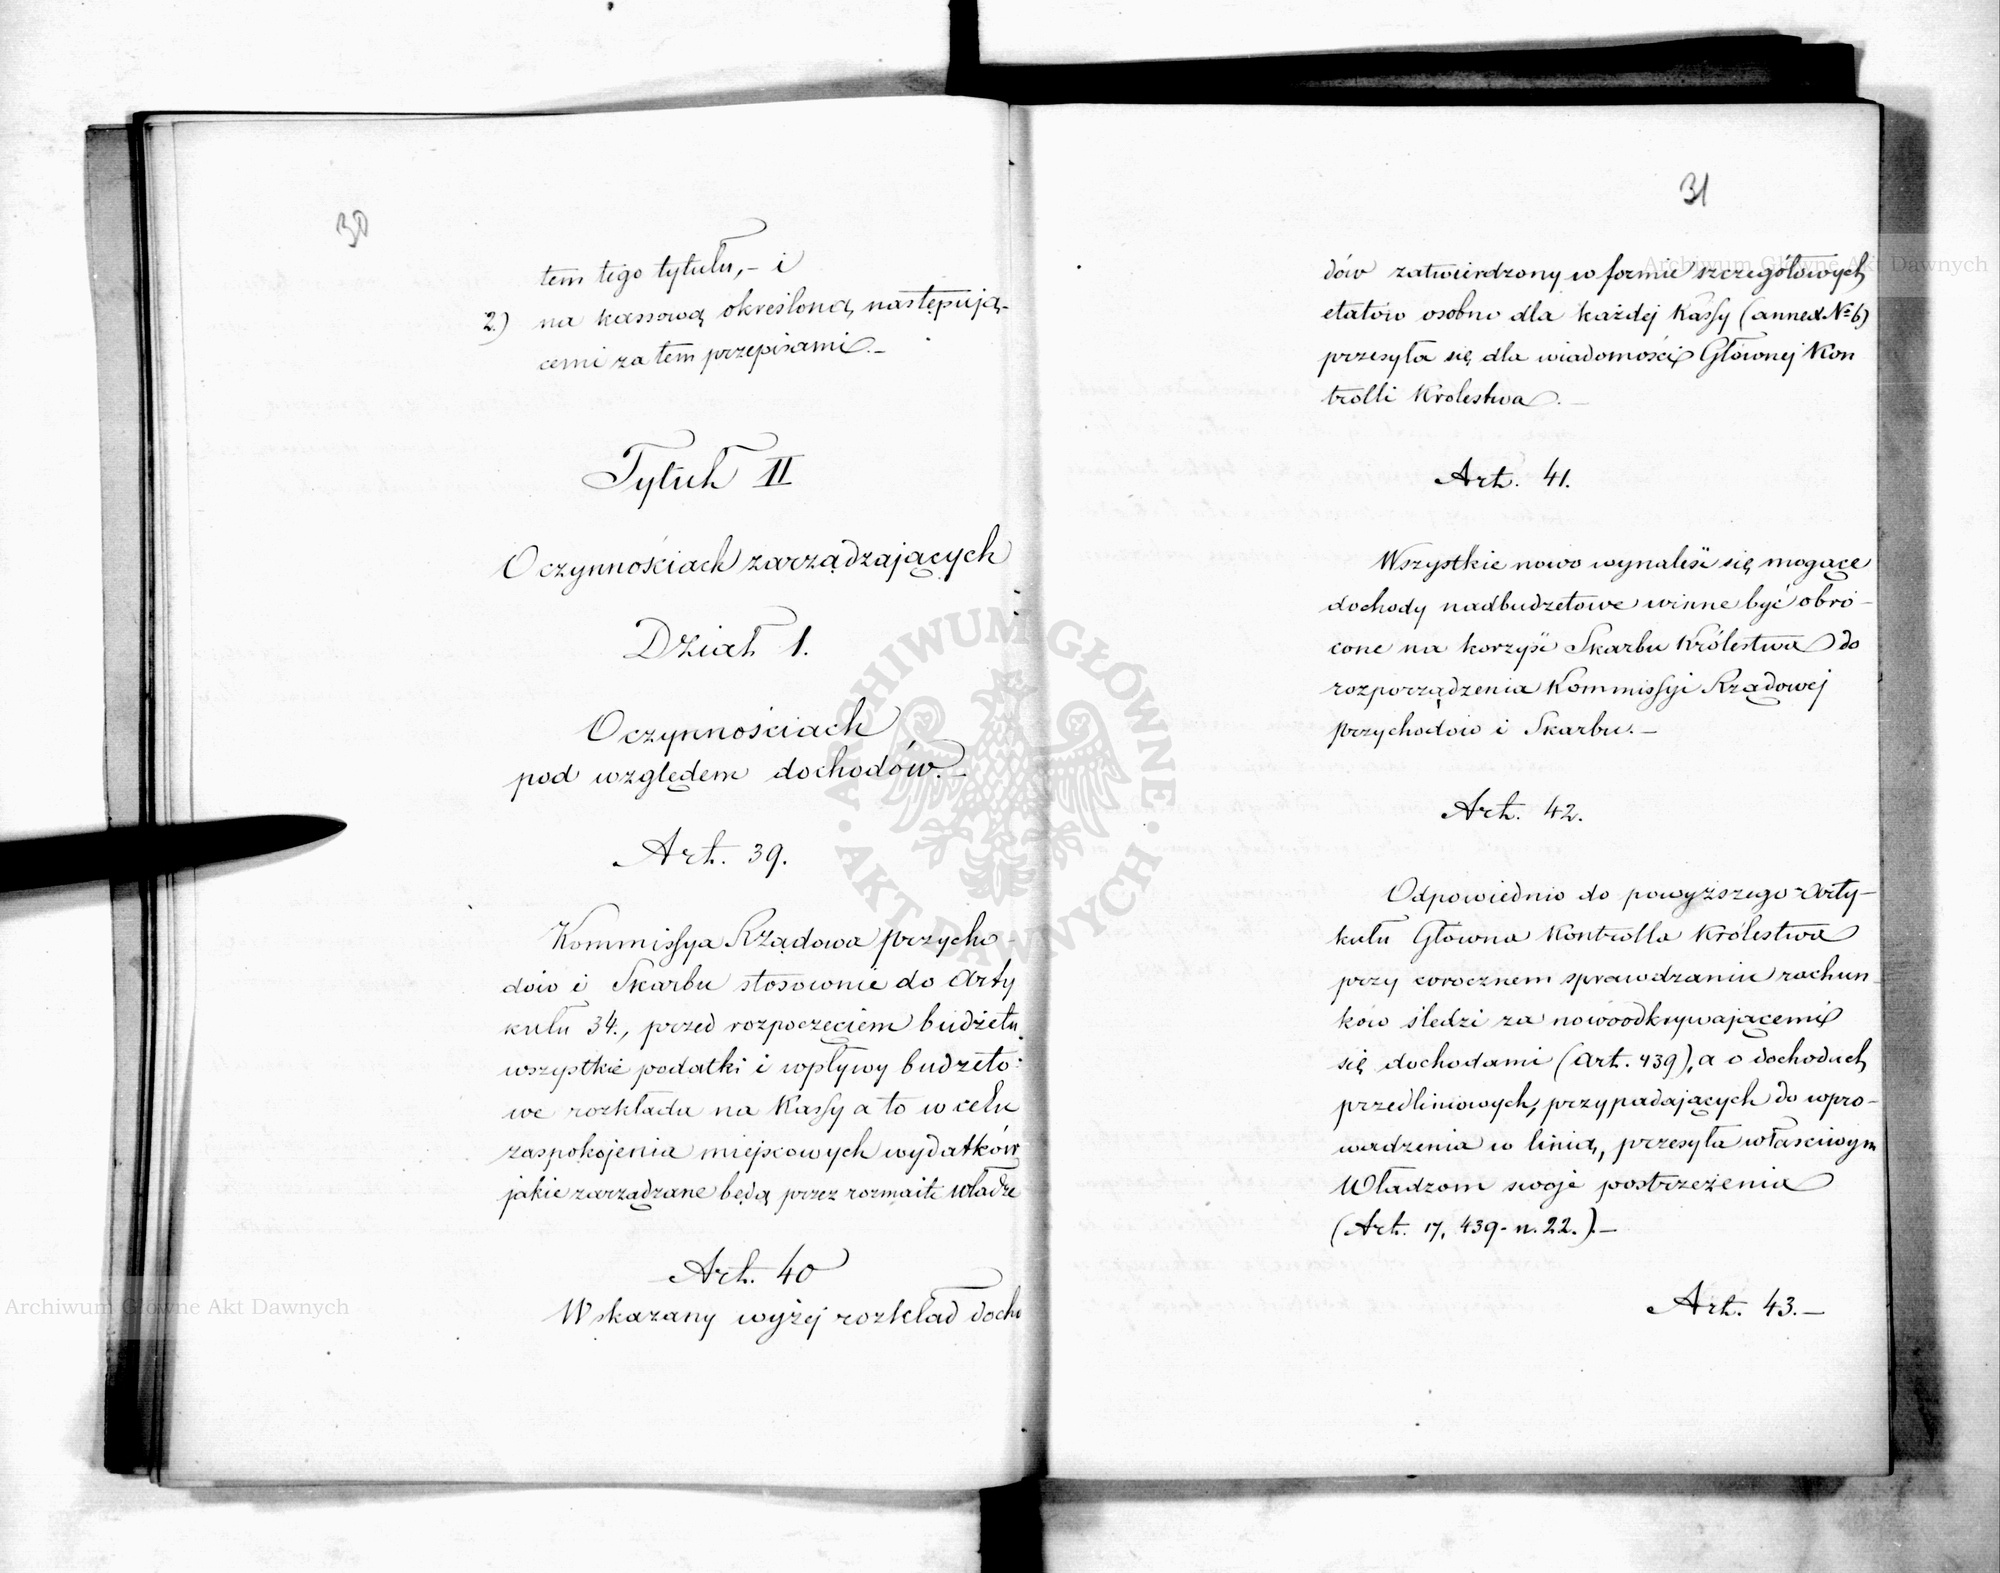 30
tem tego tytułu, - i
2.) na kassową określoną następują-
cemi za tem przepisami. -
Tytuł II
O czynnościach zarządzających
Dział 1.
O czynnościach
pod względem dochodów. -
Art. 39.
Kommissya Rządowa przycho-
dów i Skarbu stosownie do Arty
kułu 34., przed rozpoczęciem budżetu
wszystkie podatki i wpływy budżeto-
we rozkłada na Kassy a to w celu
zaspokojenia miejscowych wydatków
jakie zarządzane będą przez rozmaite władze
Art. 40
Wskazany wyżej rozkład docho
31
dów zatwierdzony w formie szczegółowych
etatów osobno dla każdej Kassy (annex № 6)
przesyła się dla wiadomości Głównej Kon
trolli Królestwa. -
Art. 41.
Wszystkie nowo wynaleść się mogące
dochody nadbudżetowe winne być obró-
cone na korzyść Skarbu Królestwa do
rozporządzenia Kommissyi Rządowej
Przychodów i Skarbu. -
Art. 42.
Odpowiednio do powyższego Arty-
kułu Główna Kontrolla Królestwa
przy corocznem sprawdzaniu rachun-
ków śledzi za nowoodkrywającemi
się dochodami (Art. 439), a o dochodach
przedliniowych, przypadających do wpro-
wadzenia w linią, przesyła właściwym
Władzom swoje postrzeżenia
(Art. 17, 439 - n. 22.). -
Art. 43. -
ARCHIWUM GŁÓWNE AKT DAWNYCH
Archiwum Główne Akt Dawnych
Archiwum Główne Akt Dawnych